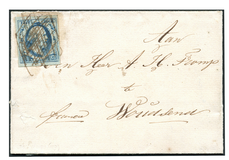 Aan
den Heer A. H. Tromp
franco
Woudsend